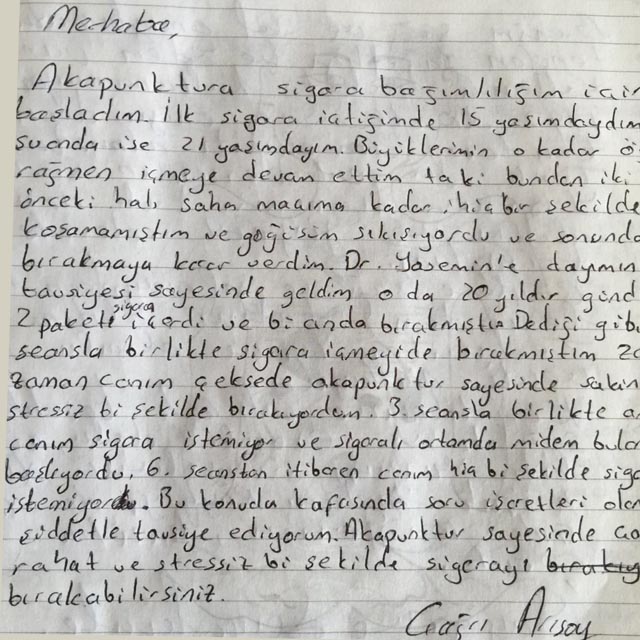 Merhaba,
Akapunktura sigara bağımlılığım için
başladım. İlk sigara içtiğimde 15 yaşımdaydım
şuanda ise 21 yaşımdayım. Büyüklerimin o kadar
rağmen içmeye devam ettim taki bundan iki
önceki halı saha maçıma kadar, hiçbir şekilde
koşamamıştım ve göğüsüm sıkışıyordu ve sonunda
bırakmaya karar verdim. Dr. Yasemin'e dayımın
tavsiyesi sayesinde geldim o da 20 yıldır
2 paket sigara içerdi ve bi anda bırakmıştı. Dediği gib
seansla birlikte sigara içmeyide bırakmıştım
zaman canım çeksede akapunktur sayesinde sakin
stressiz bi şekilde bırakıyordum. 3. seansla birlikte
canım sigara istemiyor ve sigaralı ortamda midem bulan
başlıyordu. 6. seanstan itibaren canım hiç bi şekilde
istemiyor. Bu konuda kafasında soru işaretleri olan
şiddetle tavsiye ediyorum. Akapunktur sayesinde
rahat ve stressiz bi şekilde sigarayı
bırakabilirsiniz.
Çağrı Arısoy